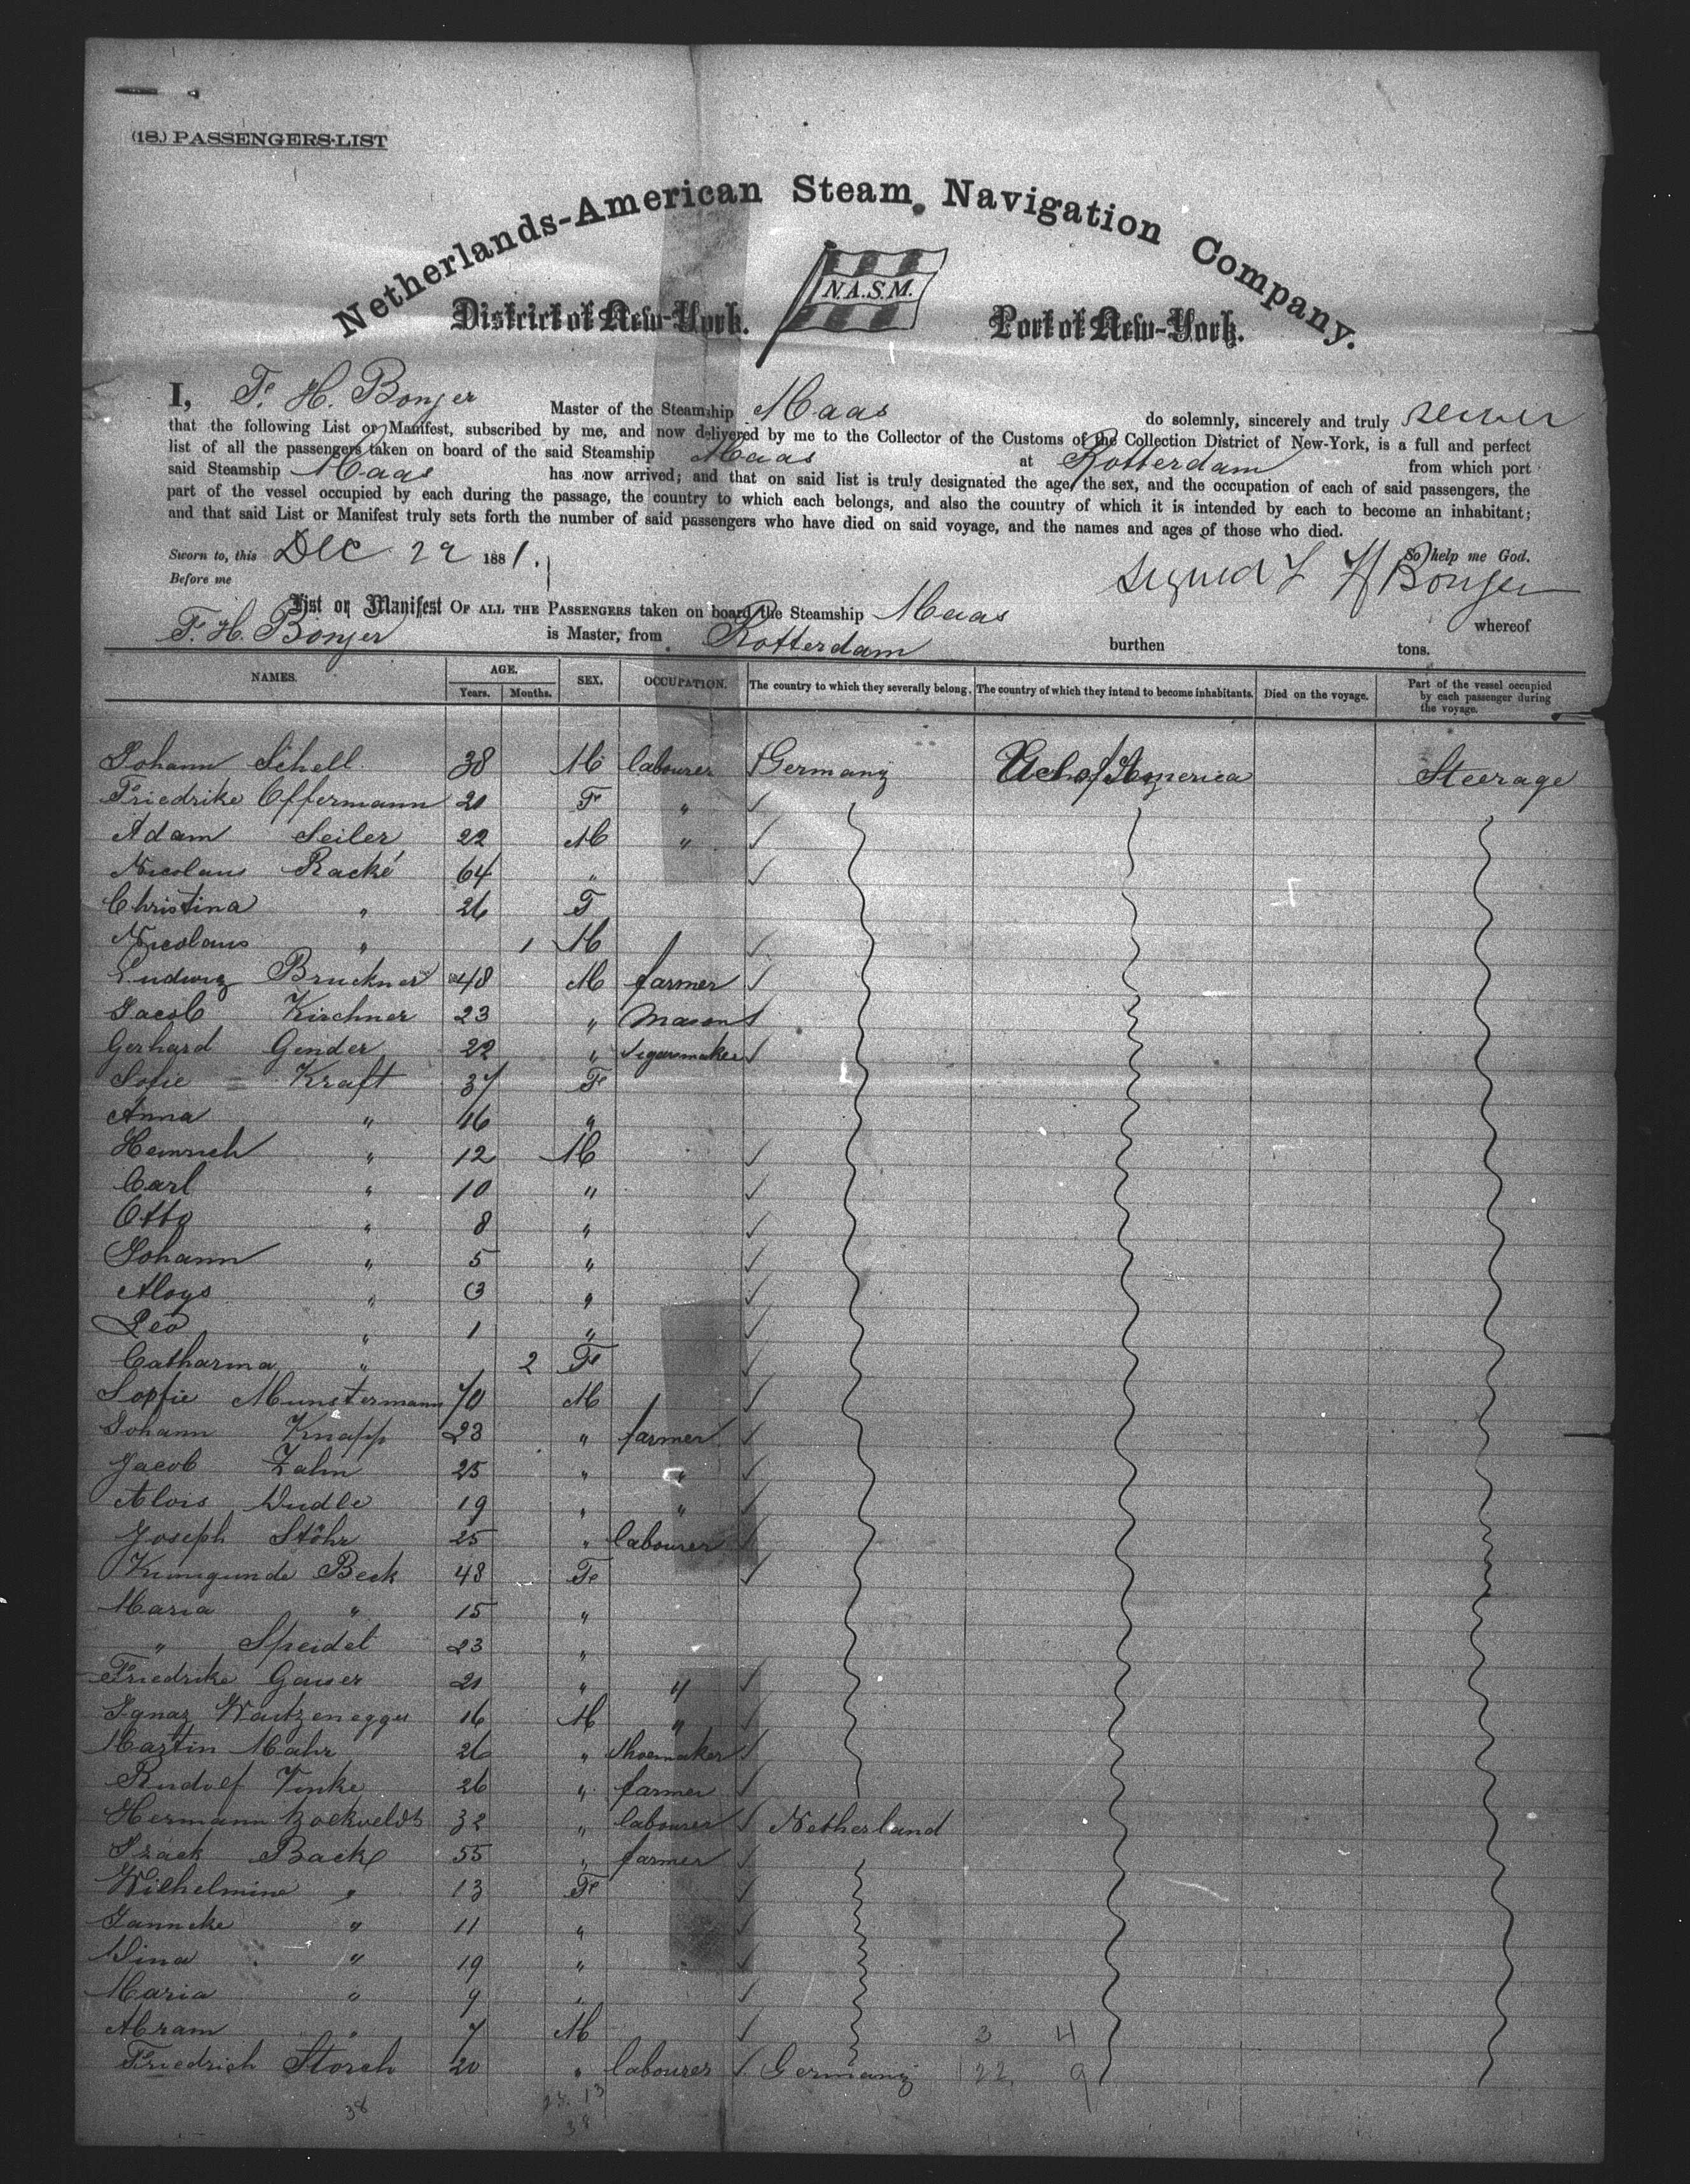 (18.) PASSENGERS-LIST
Netherlands-American Steam Navigation Company.
N.A.S.M.
District of New-York. Port of New-York.
I, F. H. Bonjer Master of the Steamship Maas do solemnly, sincerely and truly swear
that the following List or Manifest, subscribed by me, and now delivered by me to the Collector of the Customs of the Collection District of New-York, is a full and perfect
list of all the passengers taken on board of the said Steamship Maas at Rotterdam from which port
said Steamship Maas has now arrived; and that on said list is truly designated the age, the sex, and the occupation of each of said passengers, the
part of the vessel occupied by each during the passage, the country to which each belongs, and also the country of which it is intended by each to become an inhabitant;
and that said List or Manifest truly sets forth the number of said passengers who have died on said voyage, and the names and ages of those who died.
Sworn to, this Dec 29 1881. So help me God.
Before me Signed F H Bonjer
List or Manifest OF ALL THE PASSENGERS taken on board the Steamship Maas whereof
F. H. Bonjer is Master, from Rotterdam burthen tons.
NAMES. AGE. Years. Months. SEX. OCCUPATION. The country to which they severally belong. The country of which they intend to become inhabitants. Died on the voyage. Part of the vessel occupied by each passenger during the voyage.
Johann Schell 38 M labourer Germany America Steerage
Friedrike Offermann 20 F "
Adam Seiler 22 M "
Nicolaus Racké 64 "
Christina " 26 F
Nicolaus " 1 M
Ludwig Bruckner 48 M farmer
Jacob Kirchner 23 " Mason
Gerhard Gender 22 " Segarmaker
Sofie Kraft 37 F
Anna " 16 "
Heinrich " 12 M
Carl " 10 "
Otto " 8 "
Johann " 5 "
Aloys " 3 "
Leo " 1 "
Catharina " 2 F
Sopfie Munstermann 70 M
Johann Knapp 23 " farmer
Jacob Zahn 25 " "
Alois Wudle 19 " "
Joseph Stöhr 25 " labourer
Kunigunde Beck 48 F
Maria " 15 "
" Speidel 23 "
Friedrike Gauser 21 " "
Ignaz Waitzenegger 16 M "
Martin Mahr 26 " Shoemaker
Rudolf Finke 26 " farmer
Hermann 32 " labourer Netherland
Izack Backe 55 " farmer
Wilhelmine " 13 F
Janneke " 11 "
Dina " 19 "
Maria " 9 "
Abram " 7 M
3 4
Friedrich Storch 20 " labourer Germany 22 9
38 25 13
38